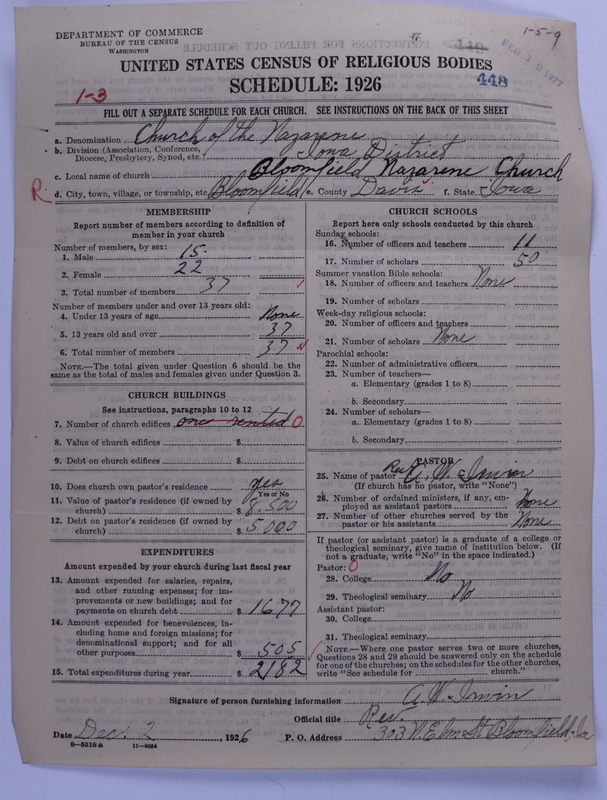 DEPARTMENT OF COMMERCE
BUREAU OF THE CENSUS
WASHINGTON
1-5-9
449
448
FEB 12 1927
UNITED STATES CENSUS OF RELIGIOUS BODIES
SCHEDULE: 1926
1-3
FILL OUT A SEPARATE SCHEDULE FOR EACH CHURCH. SEE INSTRUCTIONS ON THE BACK OF THIS SHEET
a. Denomination Church of the Nazarene
b. Division (Association, Conference, Diocese, Presbytery, Synod, etc.) Iowa District
c. Local name of church Bloomfield Nazarene Church
R. d. City, town, village, or township, etc. Bloomfield e. County Davis f. State Iowa
MEMBERSHIP
Report number of members according to definition of member in your church
Number of members, by sex:
1. Male 15
2. Female 22
3. Total number of members 37
Number of members under and over 13 years old:
4. Under 13 years of age None
5. 13 years old and over 37
6. Total number of members 37
NOTE.—The total given under Question 6 should be the same as the total of males and females given under Question 3.
CHURCH BUILDINGS
See instructions, paragraphs 10 to 12
7. Number of church edifices one rented 0
8. Value of church edifices $
9. Debt on church edifices $
10. Does church own pastor's residence? yes
Yes or No
11. Value of pastor's residence (if owned by church) $ 8,500
12. Debt on pastor's residence (if owned by church) $ 5,000
EXPENDITURES
Amount expended by your church during last fiscal year
13. Amount expended for salaries, repairs, and other running expenses; for improvements or new buildings; and for payments on church debt $ 1677
14. Amount expended for benevolences, including home and foreign missions; for denominational support; and for all other purposes $ 505
15. Total expenditures during year $ 2182
CHURCH SCHOOLS
Report here only schools conducted by this church
Sunday schools:
16. Number of officers and teachers 11
17. Number of scholars 50
Summer vacation Bible schools:
18. Number of officers and teachers None
19. Number of scholars
Week-day religious schools:
20. Number of officers and teachers
21. Number of scholars None
Parochial schools:
22. Number of administrative officers
23. Number of teachers—
a. Elementary (grades 1 to 8)
b. Secondary
24. Number of scholars—
a. Elementary (grades 1 to 8)
b. Secondary
PASTOR
25. Name of pastor Rev. A. W. Irwin
(If church has no pastor, write "None")
26. Number of ordained ministers, if any, employed as assistant pastors None
27. Number of other churches served by the pastor or his assistants None
If pastor (or assistant pastor) is a graduate of a college or theological seminary, give name of institution below. (If not a graduate, write "No" in the space indicated.)
Pastor: 0
28. College No
29. Theological seminary No
Assistant pastor:
30. College
31. Theological seminary
NOTE.—Where one pastor serves two or more churches, Questions 28 and 29 should be answered only on the schedule for one of the churches; on the schedules for the other churches, write "See schedule for church."
Signature of person furnishing information A. W. Irwin
Official title Rev.
Date Dec. 2, 1926 P. O. Address 303 N. Elm St. Bloomfield, Ia
8-5518 a 11-9064